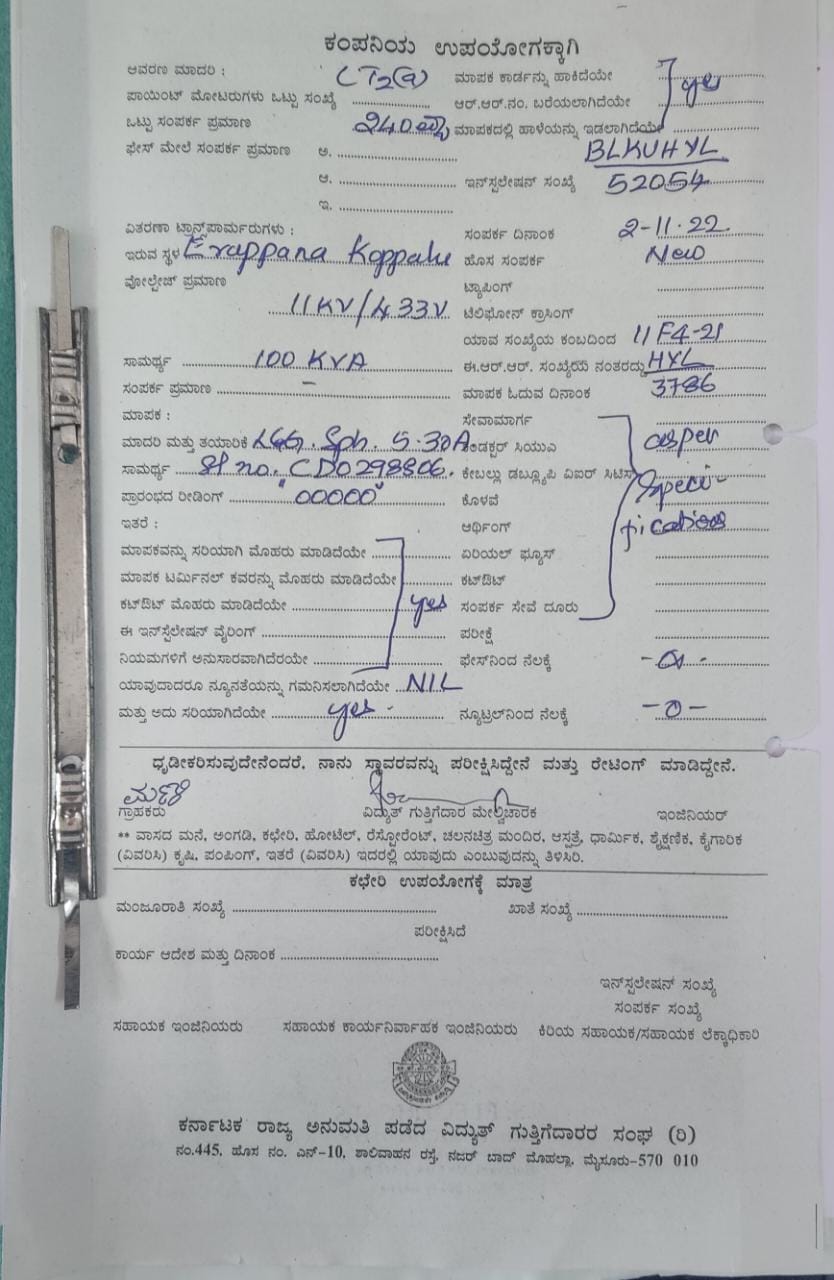 ಕಂಪನಿಯ ಉಪಯೋಗಕ್ಕಾಗಿ
ಆವರಣ ಮಾದರಿ : LT2(a) ಮಾಪಕ ಕಾರ್ಡನ್ನು ಹಾಕಿದೆಯೇ
ಪಾಯಿಂಟ್ ಮೋಟರುಗಳು ಒಟ್ಟು ಸಂಖ್ಯೆ ಆರ್.ಆರ್.ನಂ. ಬರೆಯಲಾಗಿದೆಯೇ yes
ಒಟ್ಟು ಸಂಪರ್ಕ ಪ್ರಮಾಣ 240 ಮಾಪಕದಲ್ಲಿ ಹಾಳೆಯನ್ನು ಇಡಲಾಗಿದೆಯೇ
ಫೇಸ್ ಮೇಲೆ ಸಂಪರ್ಕ ಪ್ರಮಾಣ ಅ. BLKUHYL
ಆ. ಇನ್‌ಸ್ಟಲೇಷನ್ ಸಂಖ್ಯೆ 52054
ಇ.
ವಿತರಣಾ ಟ್ರಾನ್ಸ್‌ಪಾರ್ಮರುಗಳು : ಸಂಪರ್ಕ ದಿನಾಂಕ 2-11.22
ಇರುವ ಸ್ಥಳ Erappana Koppalu ಹೊಸ ಸಂಪರ್ಕ New
ವೋಲ್ಟೇಜ್ ಪ್ರಮಾಣ ಟ್ಯಾಪಿಂಗ್
11KV/433V ಟೆಲಿಫೋನ್ ಕ್ರಾಸಿಂಗ್
ಯಾವ ಸಂಖ್ಯೆಯ ಕಂಬದಿಂದ 11F4-21
ಸಾಮರ್ಥ್ಯ 100 KVA ಈ.ಆರ್.ಆರ್. ಸಂಖ್ಯೆಯ ನಂತರದ್ದು HYL
ಸಂಪರ್ಕ ಪ್ರಮಾಣ – ಮಾಪಕ ಓದುವ ದಿನಾಂಕ 3786
ಮಾಪಕ : ಸೇವಾಮಾರ್ಗ
ಮಾದರಿ ಮತ್ತು ತಯಾರಿಕೆ L&G. Sph. 5-30A ಕಂಡಕ್ಟರ್ ಸಿಯುಎ asper
ಸಾಮರ್ಥ್ಯ Sl no. CD0298806. ಕೇಬಲ್ಲು ಡಬ್ಲ್ಯೂಪಿ ವಿಐರ್ ಸಿಟಿಸಿ Speci-
ಪ್ರಾರಂಭದ ರೀಡಿಂಗ್ "00000" ಕೊಳವೆ
ಇತರೆ : ಆರ್ಥಿಂಗ್ fications
ಮಾಪಕವನ್ನು ಸರಿಯಾಗಿ ಮೊಹರು ಮಾಡಿದೆಯೇ ಏರಿಯಲ್ ಫ್ಯೂಸ್
ಮಾಪಕ ಟರ್ಮಿನಲ್ ಕವರನ್ನು ಮೊಹರು ಮಾಡಿದೆಯೇ ಕಟ್‌ಔಟ್
ಕಟ್‌ಔಟ್ ಮೊಹರು ಮಾಡಿದೆಯೇ yes ಸಂಪರ್ಕ ಸೇವೆ ದೂರು
ಈ ಇನ್‌ಸ್ಟಲೇಷನ್ ವೈರಿಂಗ್ ಪರೀಕ್ಷೆ
ನಿಯಮಗಳಿಗೆ ಅನುಸಾರವಾಗಿದೆರಯೇ ಫೇಸ್‌ನಿಂದ ನೆಲಕ್ಕೆ
ಯಾವುದಾದರೂ ನ್ಯೂನತೆಯನ್ನು ಗಮನಿಸಲಾಗಿದೆಯೇ NIL
ಮತ್ತು ಅದು ಸರಿಯಾಗಿದೆಯೇ yes - ನ್ಯೂಟ್ರಲ್‌ನಿಂದ ನೆಲಕ್ಕೆ -0-
ಧೃಡೀಕರಿಸುವುದೇನೆಂದರೆ, ನಾನು ಸ್ಥಾವರವನ್ನು ಪರೀಕ್ಷಿಸಿದ್ದೇನೆ ಮತ್ತು ರೇಟಿಂಗ್ ಮಾಡಿದ್ದೇನೆ.
ಗ್ರಾಹಕರು ವಿದ್ಯುತ್ ಗುತ್ತಿಗೆದಾರ ಮೇಲ್ವಿಚಾರಕ ಇಂಜಿನಿಯರ್
** ವಾಸದ ಮನೆ, ಅಂಗಡಿ, ಕಛೇರಿ, ಹೋಟೆಲ್, ರೆಸ್ಟೋರೆಂಟ್, ಚಲನಚಿತ್ರ ಮಂದಿರ, ಆಸ್ಪತ್ರೆ, ಧಾರ್ಮಿಕ, ಶೈಕ್ಷಣಿಕ, ಕೈಗಾರಿಕ
(ವಿವರಿಸಿ) ಕೃಷಿ, ಪಂಪಿಂಗ್, ಇತರೆ (ವಿವರಿಸಿ) ಇದರಲ್ಲಿ ಯಾವುದು ಎಂಬುವುದನ್ನು ತಿಳಿಸಿರಿ.
ಕಛೇರಿ ಉಪಯೋಗಕ್ಕೆ ಮಾತ್ರ
ಮಂಜೂರಾತಿ ಸಂಖ್ಯೆ ಖಾತೆ ಸಂಖ್ಯೆ
ಪರೀಕ್ಷಿಸಿದೆ
ಕಾರ್ಯ ಆದೇಶ ಮತ್ತು ದಿನಾಂಕ
ಇನ್‌ಸ್ಟಲೇಷನ್ ಸಂಖ್ಯೆ
ಸಂಪರ್ಕ ಸಂಖ್ಯೆ
ಸಹಾಯಕ ಇಂಜಿನಿಯರು ಸಹಾಯಕ ಕಾರ್ಯನಿರ್ವಾಹಕ ಇಂಜಿನಿಯರು ಕಿರಿಯ ಸಹಾಯಕ/ಸಹಾಯಕ ಲೆಕ್ಕಾಧಿಕಾರಿ
ಕರ್ನಾಟಕ ರಾಜ್ಯ ಅನುಮತಿ ಪಡೆದ ವಿದ್ಯುತ್ ಗುತ್ತಿಗೆದಾರರ ಸಂಘ (ರಿ)
ನಂ.445, ಹೊಸ ನಂ. ಎನ್-10, ಶಾಲಿವಾಹನ ರಸ್ತೆ, ನಜರ್ ಬಾದ್ ಮೊಹಲ್ಲಾ, ಮೈಸೂರು-570 010